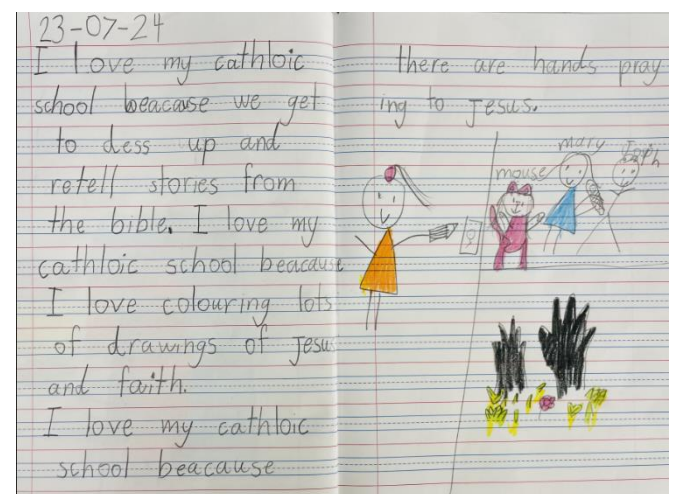 23-07-24
I love my cathloic
school beacause we get
to dess up and
retell stories from
the bible. I love my
cathloic school beacause
I love colouring lots
of drawings of Jesus
and faith.
I love my cathloic
school beacause
there are hands pray
ing to Jesus.
mary
mouse